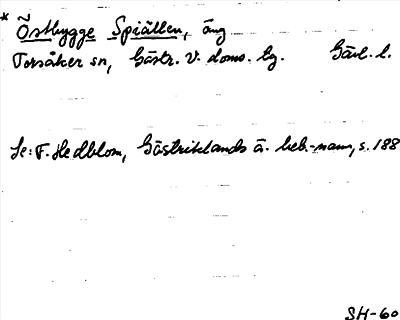 * Östbygge Spiällen, äng
Torsåker sn, Gästr. V. doms. Eg. Gävl. l.
Se: F. Hedblom, Gästriklands ä. beb.-namn, s. 188
SH-60